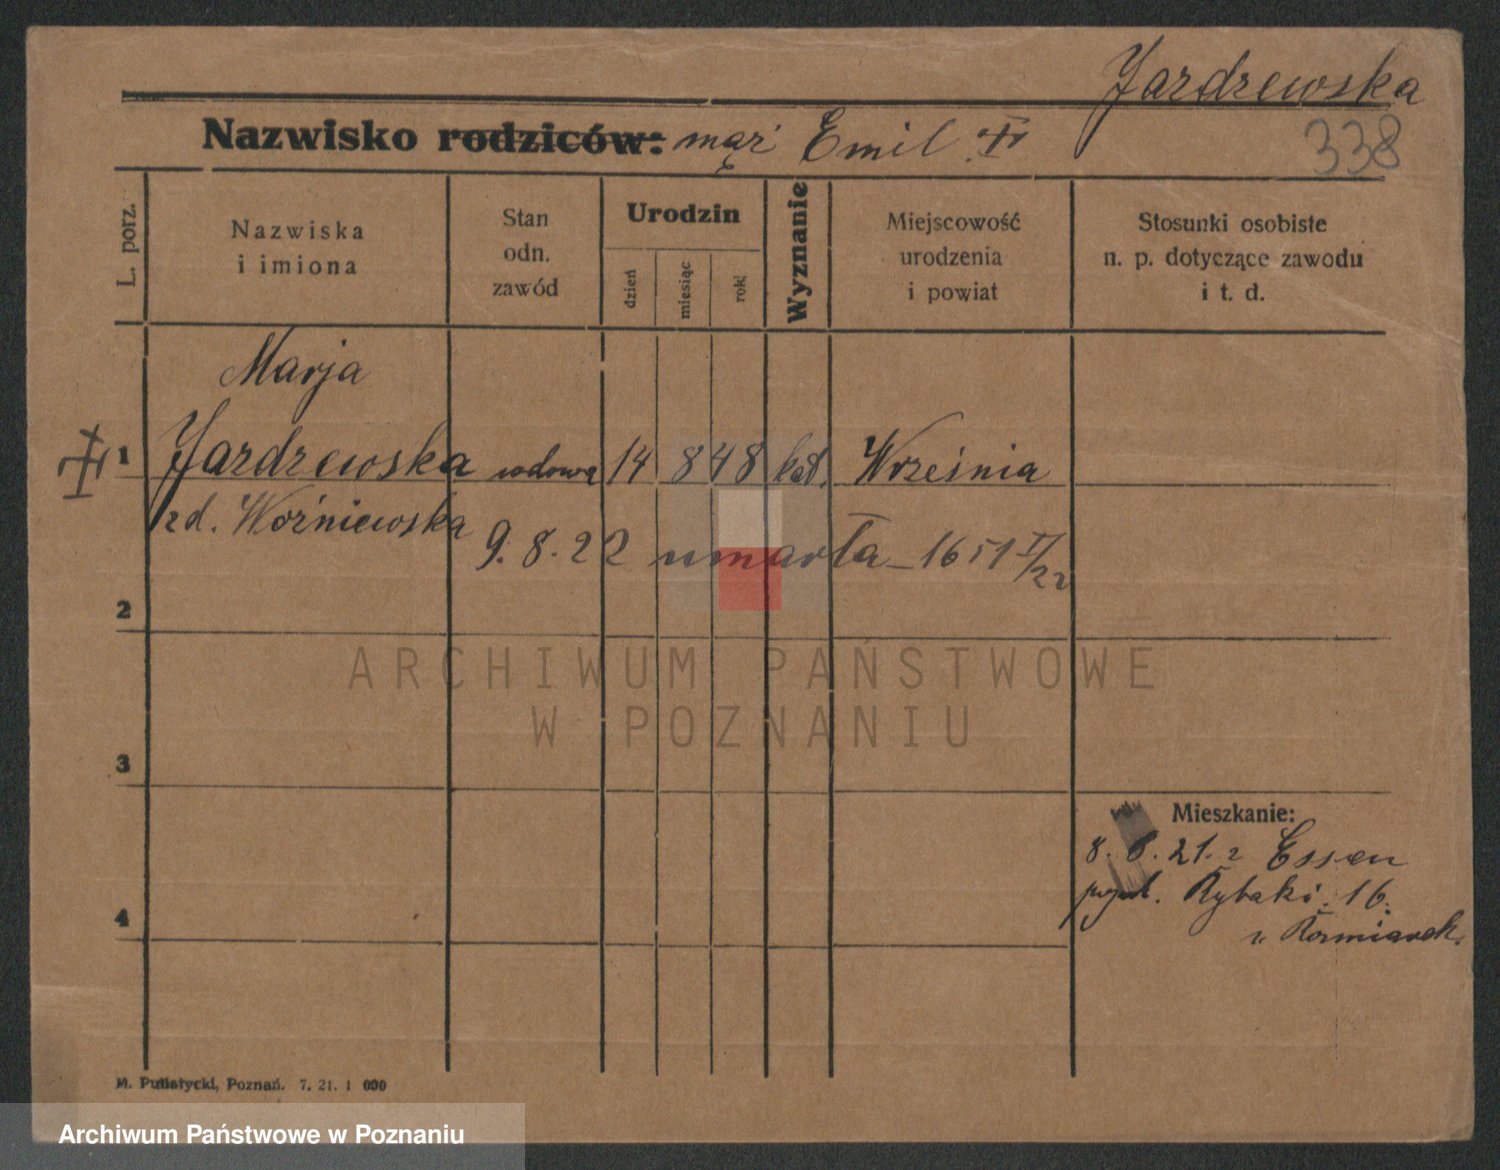 Jardrzewska
Nazwisko rodziców: mąż Emil
338
L. porz.
Nazwiska
i imiona
Stan
odn.
zawód
Urodzin
dzień
miesiąc
rok
Wyznanie
Miejscowość
urodzenia
i powiat
Stosunki osobiste
n. p. dotyczące zawodu
i t. d.
Marja
1 Jardrzewska wdowa 14 8 48 kat. Września
zd. Woźniewska
9.8.22 umarła - 1651 II/22
2
ARCHIWUM PAŃSTWOWE
W POZNANIU
3
Mieszkanie:
8. 8. 21. z Essen
Rybaki 16.
4
M. Putiatycki, Poznań. 7. 21. 1 000
Archiwum Państwowe w Poznaniu